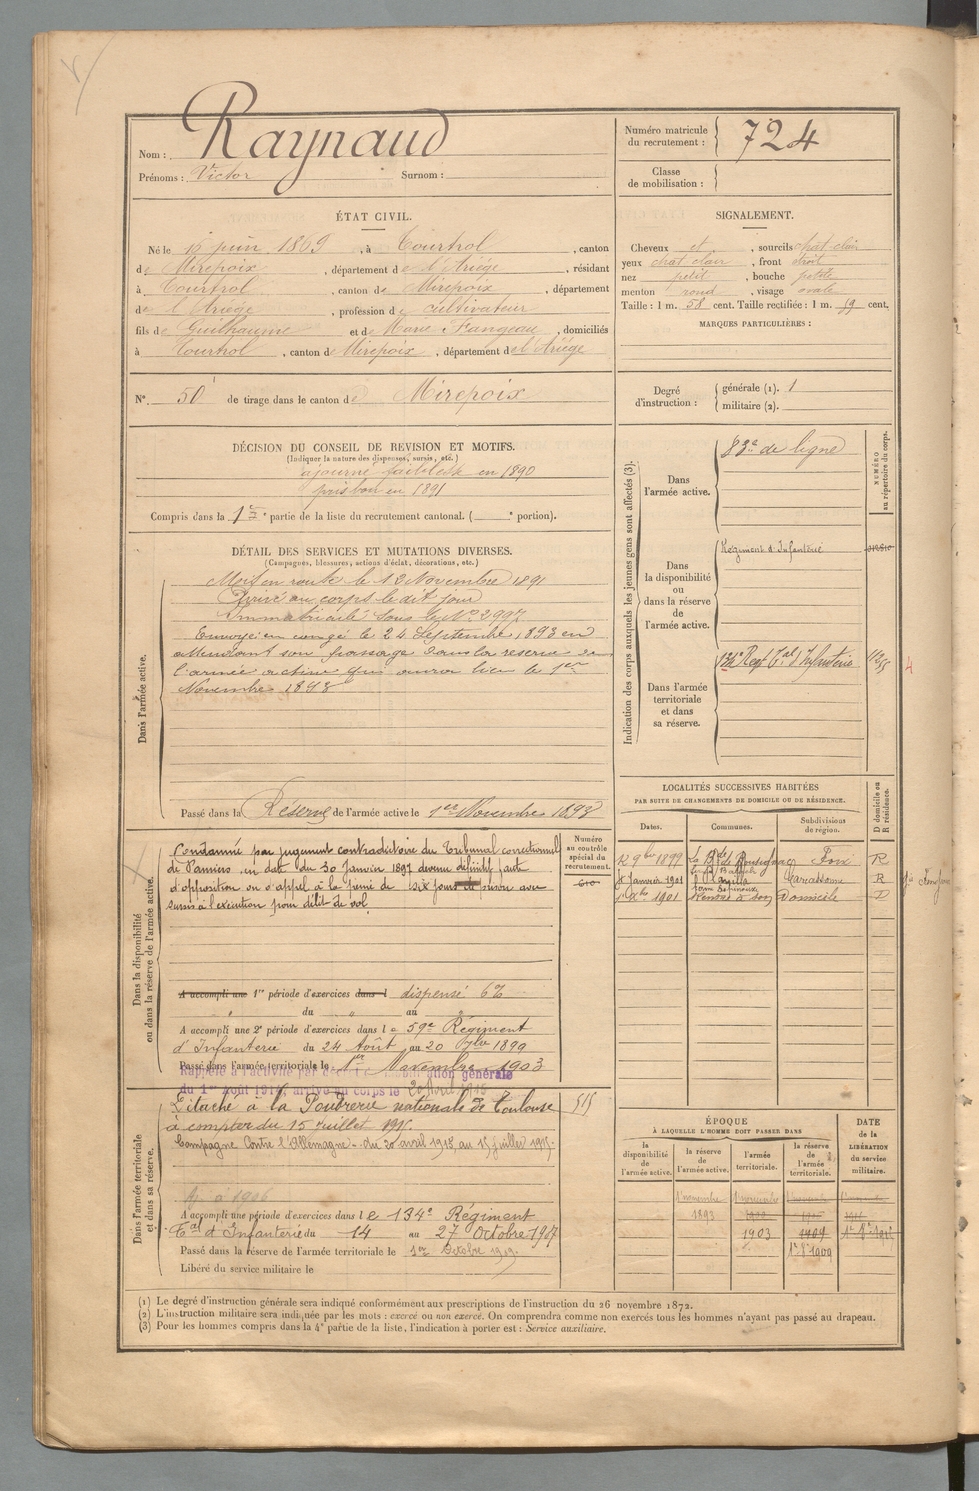 Nom : Raynaud
Prénoms : Victor Surnom :
Numéro matricule du recrutement : 724
Classe de mobilisation :
ÉTAT CIVIL.
Né le juin 1869, à Courtrol, canton
de Mirepoix, département de l'Ariège, résidant
à Courtrol, canton de Mirepoix, département
de l'Ariège, profession de cultivateur
fils de Guilhaume et de Marie Fangeau, domiciliés
à Courtrol, canton de Mirepoix, département de l'Ariège
SIGNALEMENT.
Cheveux et, sourcils chat clair
yeux chat clair, front droit
nez petit, bouche petite
menton rond, visage ovale
Taille : 1 m. 58 cent. Taille rectifiée : 1 m. 59 cent.
MARQUES PARTICULIÈRES :
N° 50 de tirage dans le canton de Mirepoix
Degré d'instruction : générale (1). 1
militaire (2).
DÉCISION DU CONSEIL DE REVISION ET MOTIFS.
(Indiquer la nature des dispenses, sursis, etc.)
ajourné faiblesse en 1890
pris bon en 1891
Compris dans la 1re partie de la liste du recrutement cantonal. ( e portion).
DÉTAIL DES SERVICES ET MUTATIONS DIVERSES.
(Campagnes, blessures, actions d'éclat, décorations, etc.)
Dans l'armée active.
Mis en route le 12 Novembre 1891
Arrivé au corps le dit jour
Immatriculé sous le N° 2997
Envoyé en congé le 24 Septembre 1893 en
attendant son passage dans la réserve de
l'armée active qui aura lieu le 1er
Novembre 1893
Passé dans la Réserve de l'armée active le 1er Novembre 1893
Indication des corps auxquels les jeunes gens sont affectés (3).
NUMÉRO au répertoire du corps.
Dans l'armée active.
83e de ligne
Dans la disponibilité ou dans la réserve de l'armée active.
Régiment d'Infanterie
Dans l'armée territoriale et dans sa réserve.
134e Regt Tal d'Infanterie
LOCALITÉS SUCCESSIVES HABITÉES
PAR SUITE DE CHANGEMENTS DE DOMICILE OU DE RÉSIDENCE.
Dates. Communes. Subdivisions de région. D domicile ou R résidence.
12 9bre 1899 Foix R
Janvier 1901 Carcassonne R
1901 Domicile D
Dans la disponibilité ou dans la réserve de l'armée active.
Numéro au contrôle spécial du recrutement.
Condamné par jugement contradictoire du Tribunal correctionnel
de Pamiers en date du 30 Janvier 1897 devenu définitif faute
d'opposition ou d'appel à la peine de six jours de prison avec
sursis à l'exécution pour délit de vol.
A accompli une 1re période d'exercices dans l dispensé 6%
du " au "
A accompli une 2e période d'exercices dans le 59e Régiment
d'Infanterie du 24 Août au 20 7bre 1899
Passé dans l'armée territoriale le 1er Novembre 1903
Rappelé à l'activité générale
du 1er août 1914, arrivé au corps le 20 avril 1915
Dans l'armée territoriale et dans sa réserve.
Détaché à la Poudrerie nationale de Toulouse
à compter du 15 Juillet 1915.
Campagne Contre l'Allemagne - du 20 avril 1915 au 15 juillet 1915.
515
à 1906
A accompli une période d'exercices dans le 134e Régiment
Tal d'Infanterie du 14 au 27 Octobre 1907
Passé dans la réserve de l'armée territoriale le 1er Octobre 1909.
Libéré du service militaire le
ÉPOQUE
À LAQUELLE L'HOMME DOIT PASSER DANS
DATE de la LIBÉRATION du service militaire.
la disponibilité de l'armée active.
la réserve de l'armée active.
l'armée territoriale.
la réserve de l'armée territoriale.
1 novembre 1 novembre
1893
1903 1909
1er 8bre 1909
(1) Le degré d'instruction générale sera indiqué conformément aux prescriptions de l'instruction du 26 novembre 1872.
(2) L'instruction militaire sera indiquée par les mots : exercé ou non exercé. On comprendra comme non exercés tous les hommes n'ayant pas passé au drapeau.
(3) Pour les hommes compris dans la 4e partie de la liste, l'indication à porter est : Service auxiliaire.